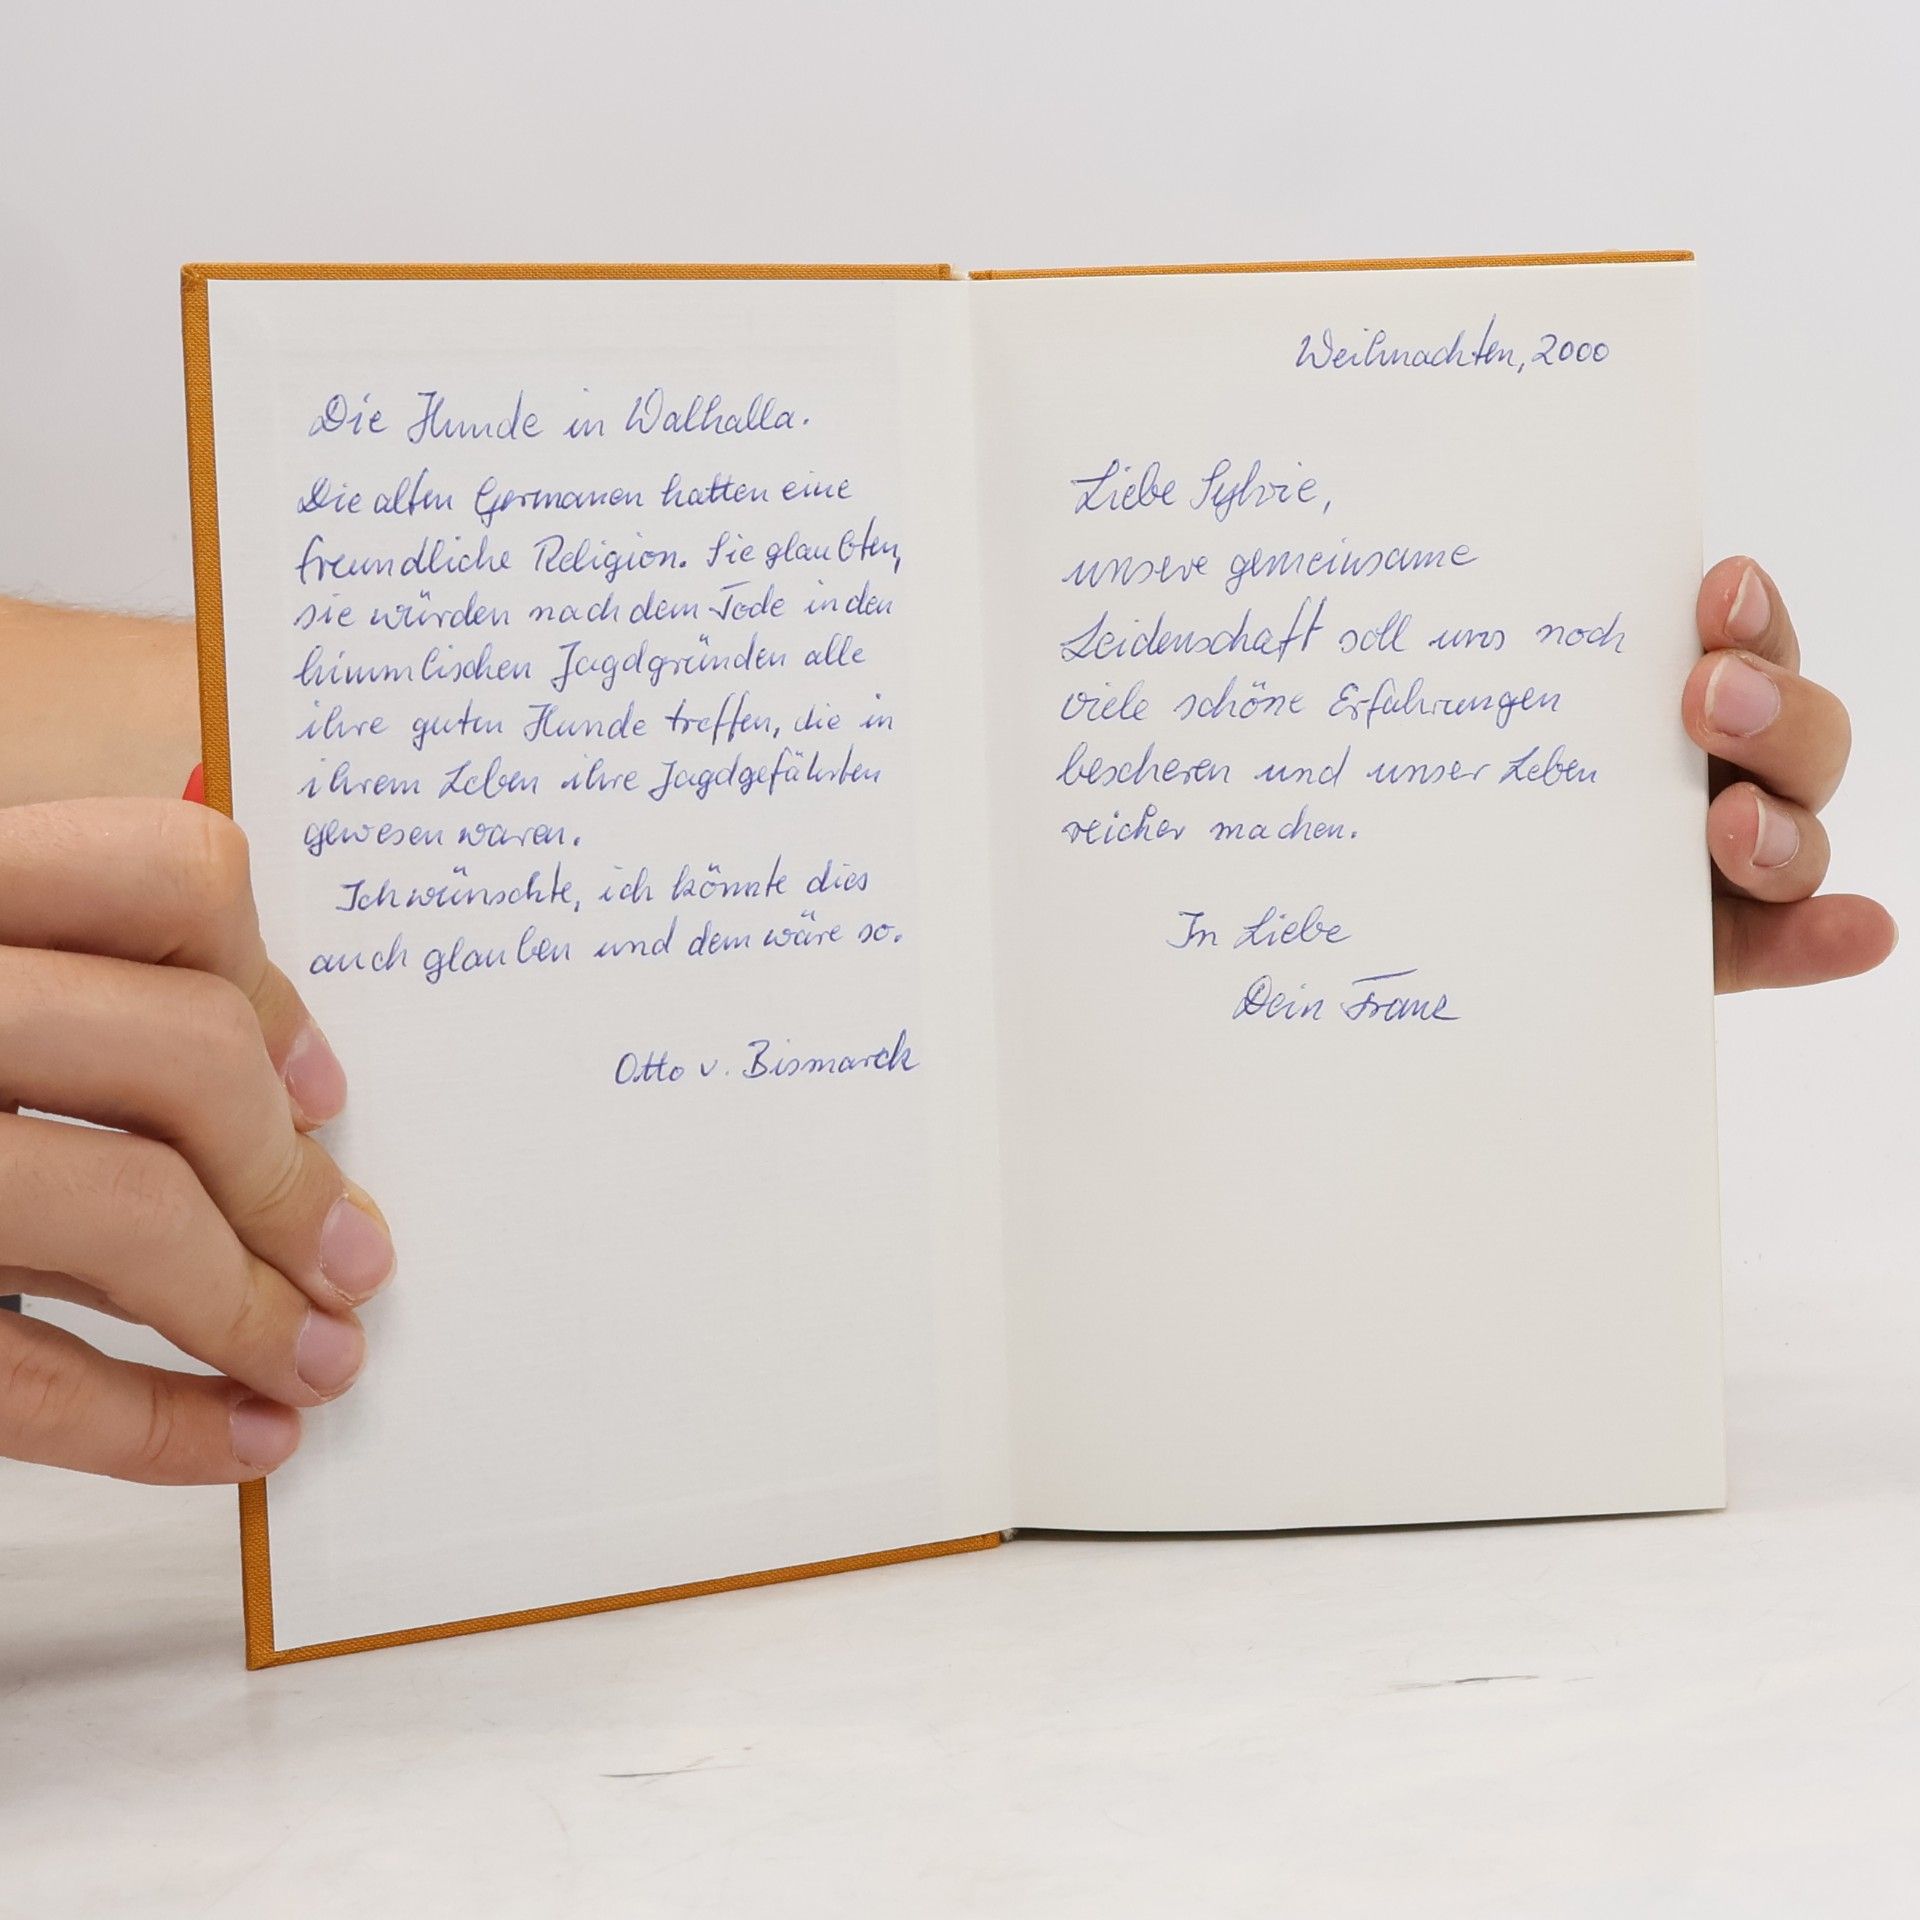 Die Hunde in Walhalla.
Die alten Germanen hatten eine
freundliche Religion. Sie glaubten,
sie würden nach dem Tode in den
himmlischen Jagdgründen alle
ihre guten Hunde treffen, die in
ihrem Leben ihre Jagdgefährten
gewesen waren.
Ich wünschte, ich könnte dies
auch glauben und dem wäre so.
Otto v. Bismarck
Weihnachten, 2000
Liebe Sylvie,
unsere gemeinsame
Leidenschaft soll uns noch
viele schöne Erfahrungen
bescheren und unser Leben
reicher machen.
In Liebe
Dein Franz